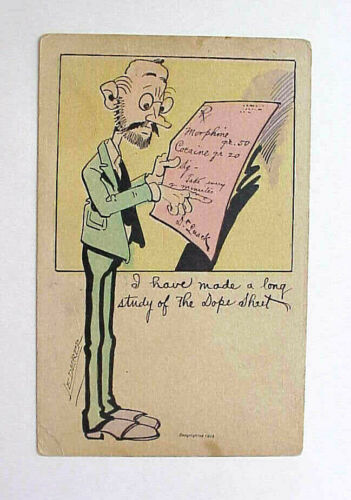 ℞
Morphine
gr. 50
Cocaine gr 20
Mg -
Take every
2 minutes
Dr Quack
I have made a long
study of The Dope Sheet
Copyrighted